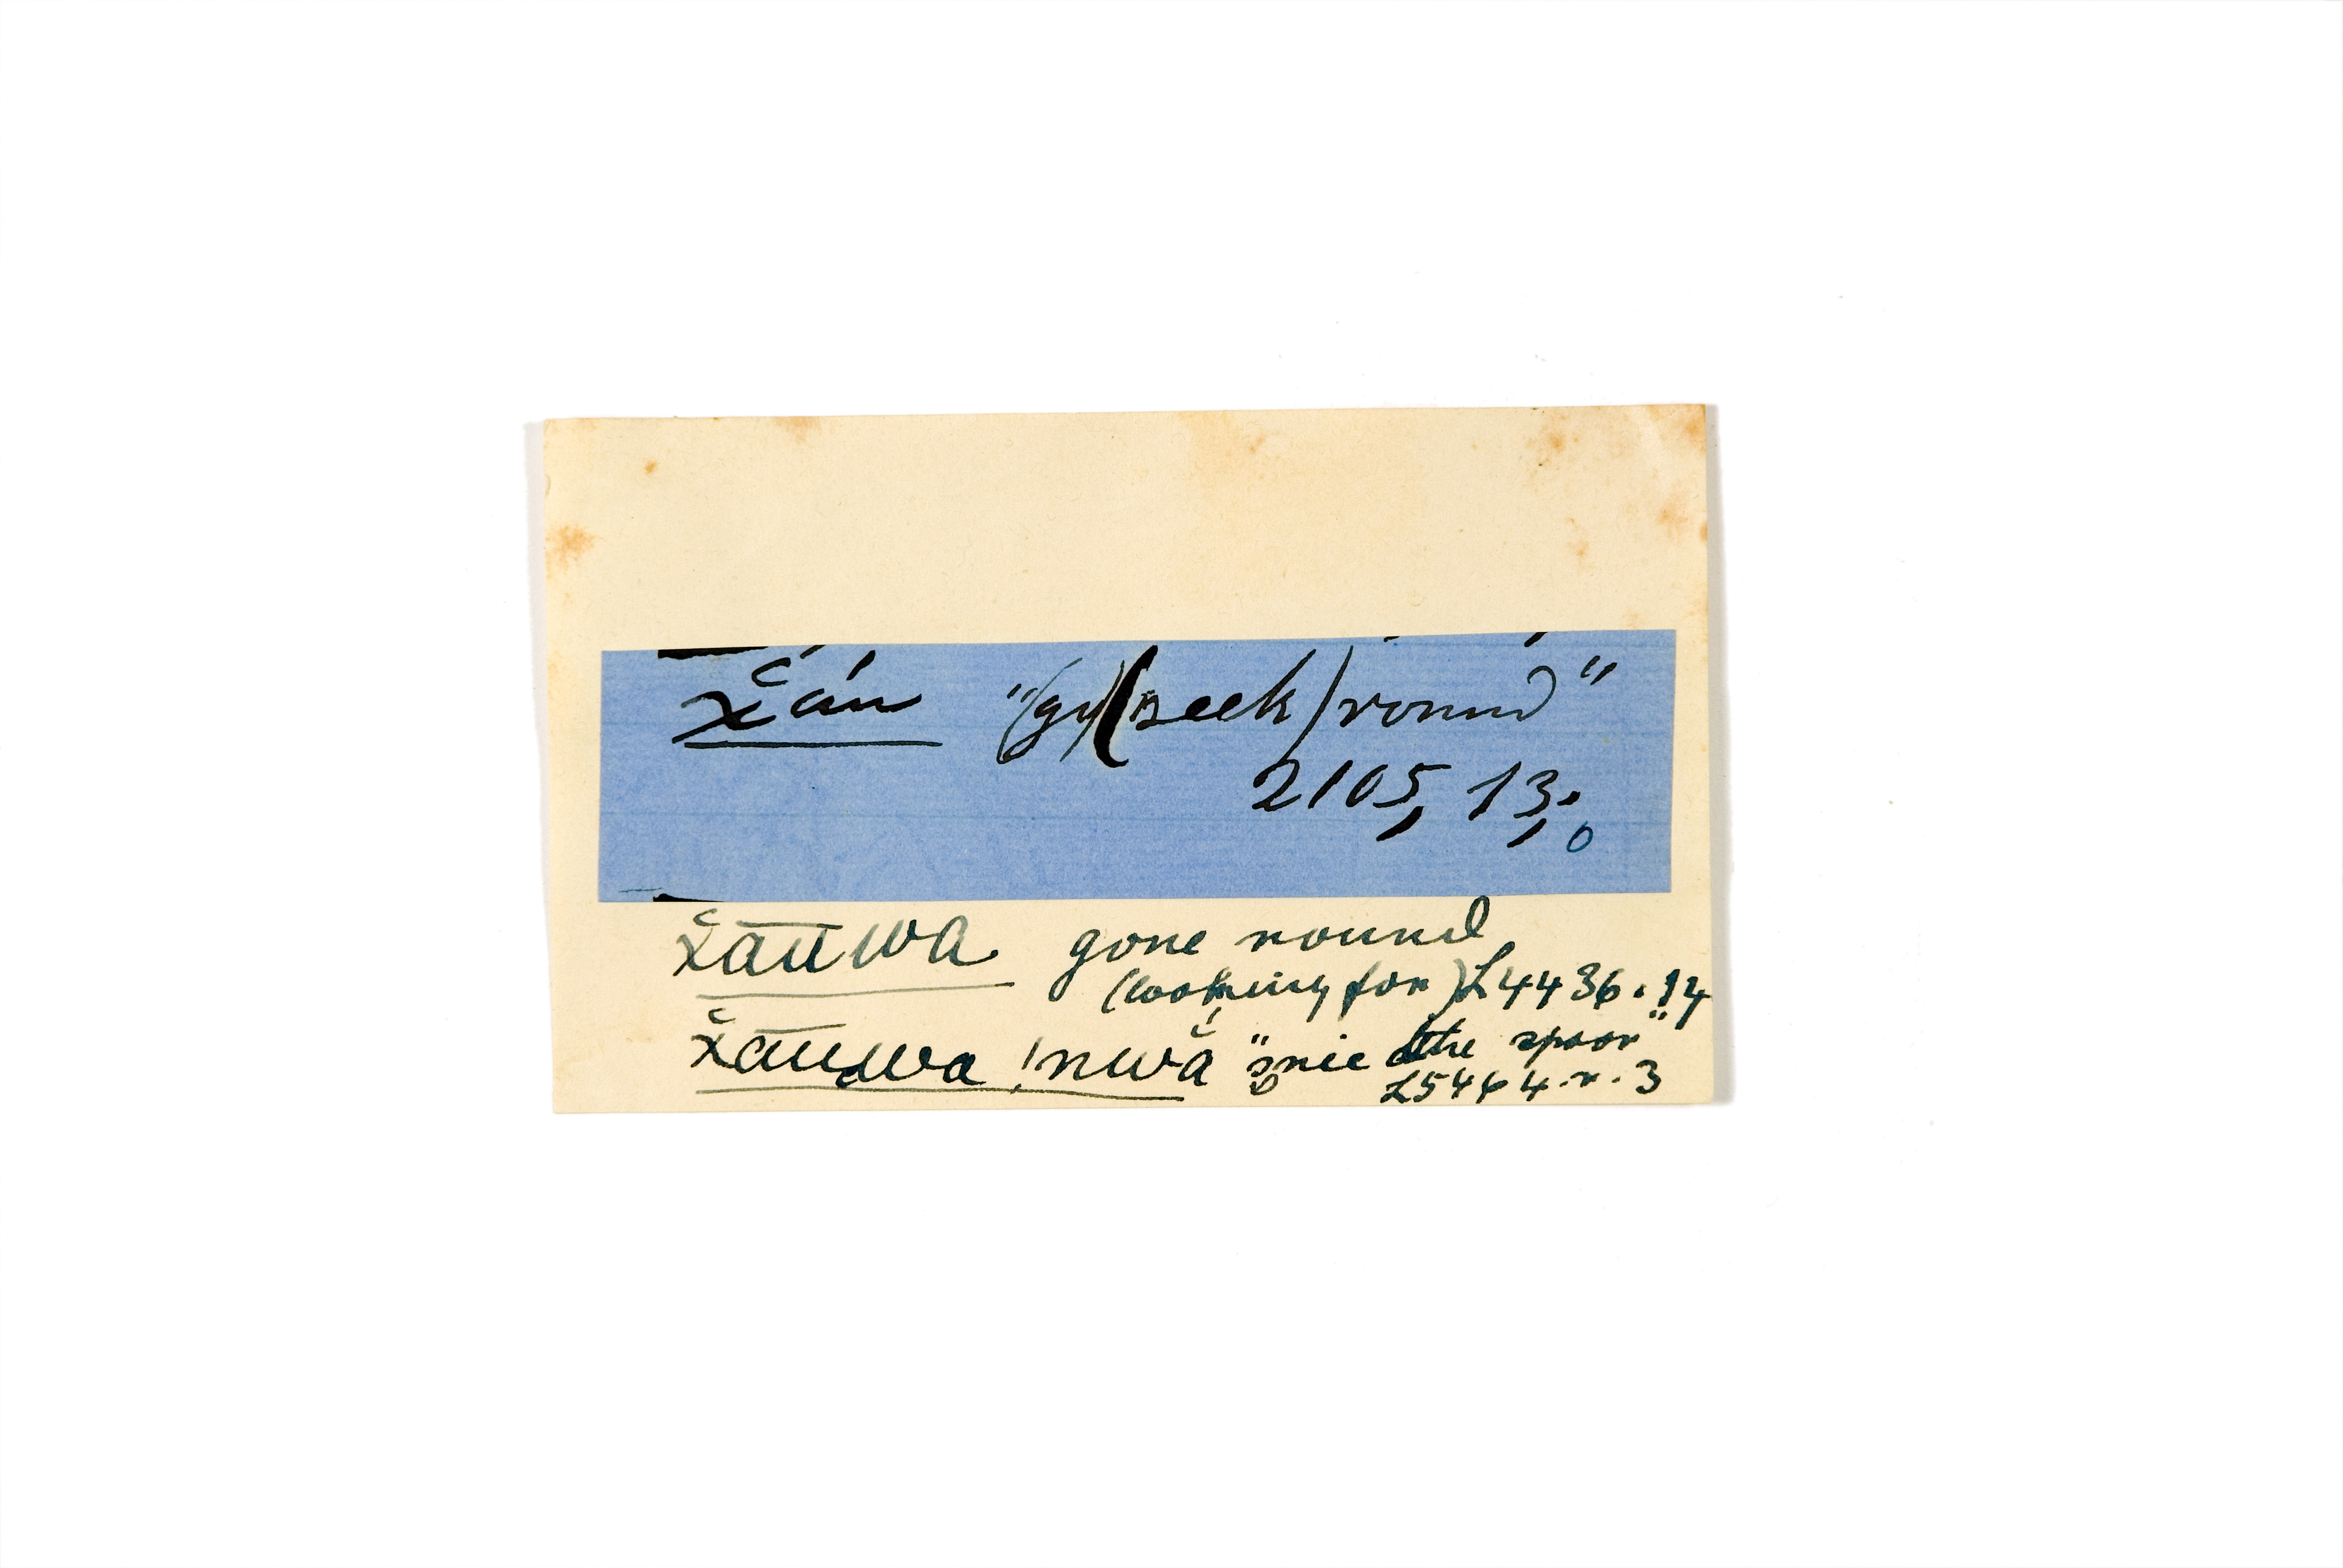 χ̆áu "(go)(seek) round"
2105, 13,.
χ̆āūwa gone round
(looking for) L4436.14
χ̆āūwa !nwă "the spoor"
L5464.r.3